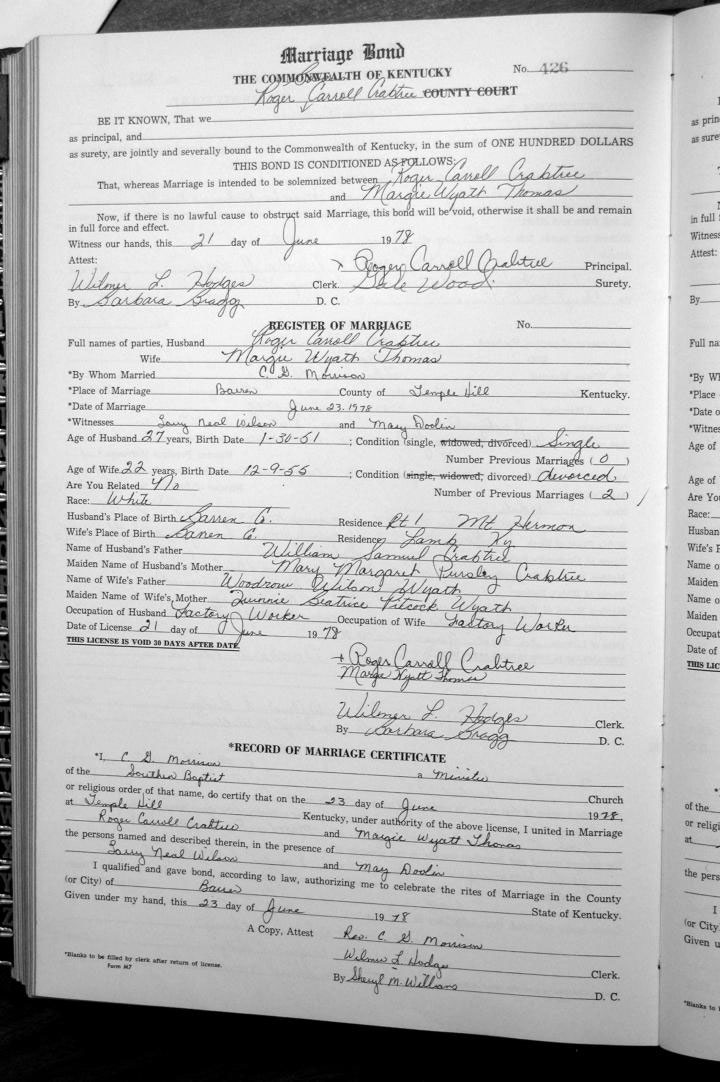 Marriage Bond
No. 426
THE COMMONWEALTH OF KENTUCKY
Roger Carroll Crabtree COUNTY COURT
BE IT KNOWN, That we
as principal, and
as surety, are jointly and severally bound to the Commonwealth of Kentucky, in the sum of ONE HUNDRED DOLLARS
THIS BOND IS CONDITIONED AS FOLLOWS:
That, whereas Marriage is intended to be solemnized between Roger Carroll Crabtree
and Margie Wyath Thomas
Now, if there is no lawful cause to obstruct said Marriage, this bond will be void, otherwise it shall be and remain
in full force and effect.
Witness our hands, this 21 day of June 1978
Attest: Roger Carroll Crabtree Principal.
Wilmer L. Hodges Clerk. Gale Wood Surety.
By Barbara Bragg D. C.
REGISTER OF MARRIAGE No.
Full names of parties, Husband Roger Carroll Crabtree
Wife Margie Wyath Thomas
*By Whom Married C. G. Morrison
*Place of Marriage Barren County of Temple Hill Kentucky.
*Date of Marriage June 23, 1978
*Witnesses Larry Neal Wilson and Mary Doolin
Age of Husband 27 years, Birth Date 1-30-51 ; Condition (single, widowed, divorced) Single
Number Previous Marriages ( 0 )
Age of Wife 22 years, Birth Date 12-9-55 ; Condition (single, widowed, divorced) divorced
Are You Related No Number of Previous Marriages ( 2 )
Race: White
Husband's Place of Birth Barren Co. Residence Rt 1 Mt Hermon
Wife's Place of Birth Barren Co. Residence Lamb Ky
Name of Husband's Father William Samuel Crabtree
Maiden Name of Husband's Mother Mary Margaret Pursley Crabtree
Name of Wife's Father Woodrow Wilson Wyath
Maiden Name of Wife's Mother Beatrice Pitcock Wyath
Occupation of Husband Factory Worker Occupation of Wife Factory Worker
Date of License 21 day of June 1978
THIS LICENSE IS VOID 30 DAYS AFTER DATE
+ Roger Carroll Crabtree
Margie Wyatt Thomas
Wilmer L. Hodges Clerk.
By Barbara Bragg D. C.
*RECORD OF MARRIAGE CERTIFICATE
*I, C. G. Morrison a Minister
of the Southern Baptist Church
or religious order of that name, do certify that on the 23 day of June 1978,
at Temple Hill Kentucky, under authority of the above license, I united in Marriage
Roger Carroll Crabtree and Margie Wyatt Thomas
the persons named and described therein, in the presence of
Larry Neal Wilson and May Doolin
I qualified and gave bond, according to law, authorizing me to celebrate the rites of Marriage in the County
(or City) of Barren State of Kentucky.
Given under my hand, this 23 day of June 1978
A Copy, Attest Rev. C. G. Morrison
Wilmer L Hodges Clerk.
By Sheryl M. Williams D. C.
*Blanks to be filled by clerk after return of license.
Form M7